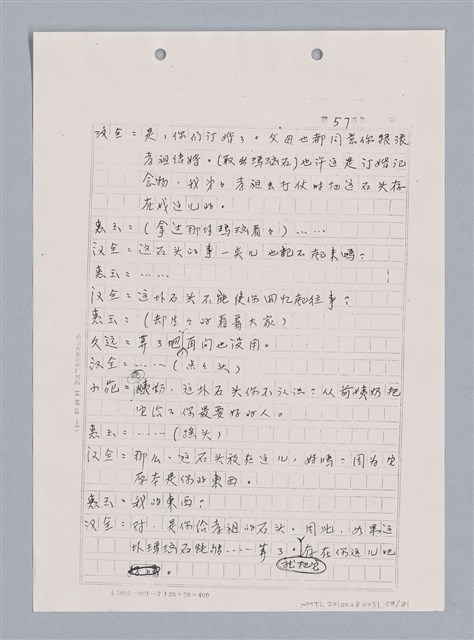 第57頁
汉全：是，你们订婚了。父母也都同意你跟張
孝祖结婚。(取出瑪瑙石)也许这是订婚纪
念物，我弟々孝祖去打仗时把这石头存
在我这儿的。
惠玉：(拿过那块瑪瑙看々)……
汉全：这石头的事一点儿也記不起来嗎？
惠玉：……
汉全：这块石头不能使你回忆起往事？
惠玉：(却生々的看着大家)
久远：算了吧，再问也没用。
汉全：……(点々头)
小苑：姨奶，这块石头你不认识？从前姨奶把
它给了你最要好的人。
惠玉：……(摇头)
汉全：那么，这石头放在这儿，好嗎？因为它
原本是你的東西。
惠玉：我的東西？
汉全：对，是你给孝祖的石头。因此，如果这
块瑪瑙石能够……算了。我把它存在你这儿吧
。
(1002-001-2)20×20=400
NMTL20120280031,58/81